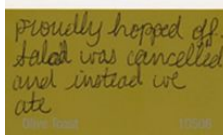 proudly hopped off.
Salad was cancelled
and instead we
ate
Olive Toast 1050B